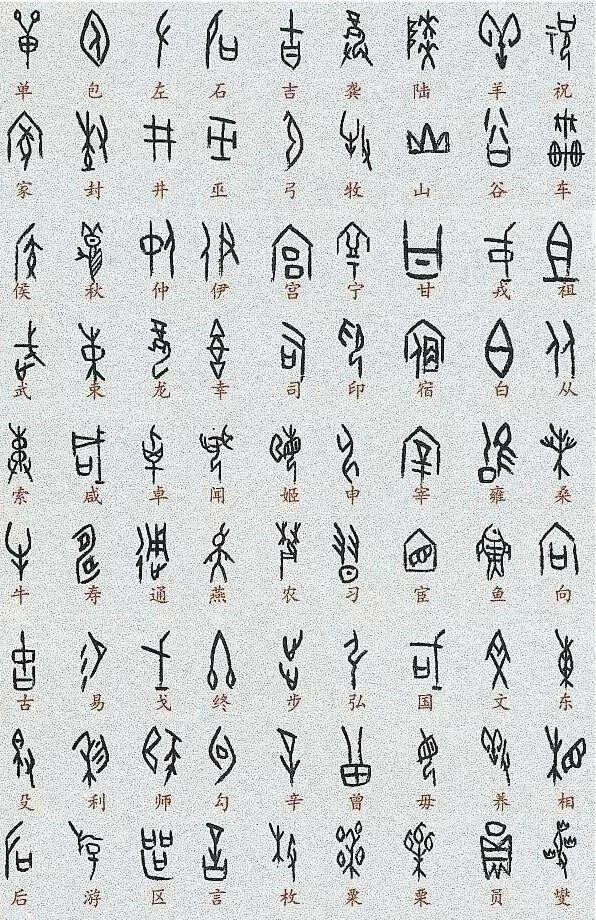 单 包 左 石 吉 龚 陆 羊 祝
家 封 井 巫 弓 牧 山 谷 车
侯 秋 仲 伊 宫 宁 甘 戎 祖
武 束 龙 幸 司 印 宿 白 从
索 咸 卓 闻 姬 申 宰 雍 桑
牛 寿 通 燕 农 习 宦 鱼 向
古 易 戈 终 步 弘 国 文 东
殳 利 师 勾 辛 曾 毋 养 相
后 游 区 言 枚 粟 栗 员 燮